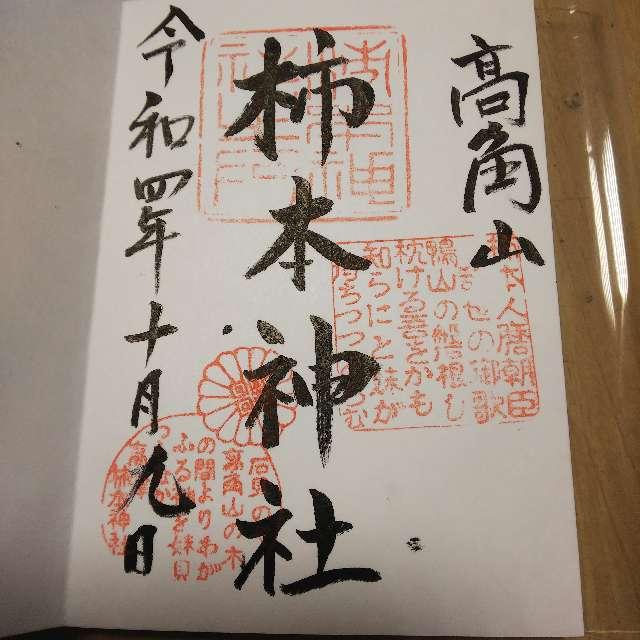 高角山
柿本神社
令和四年十月九日
人麿朝臣
せの御歌
鴨山の磐根し
枕ける吾をかも
知らにと妹が
待ちつつ
石見の
高角山の木
の間よりわが
ふる袖を妹見
柿本神社